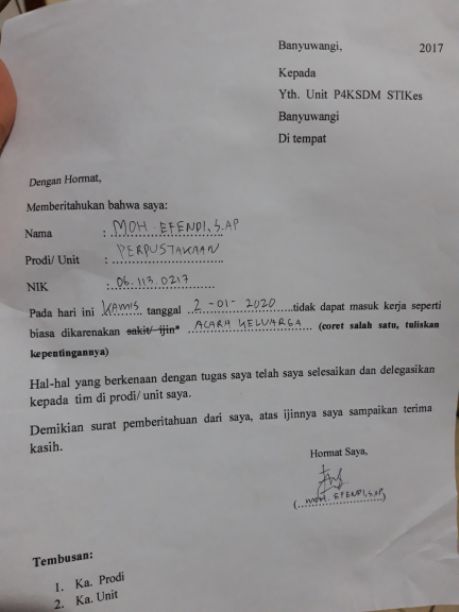 Banyuwangi, 2017
Kepada
Yth. Unit P4KSDM STIKes
Banyuwangi
Di tempat
Dengan Hormat,
Memberitahukan bahwa saya:
Nama : MOH. EFENDI, S.AP
Prodi/ Unit : PERPUSTAKAAN
NIK : 06.113.0217
Pada hari ini KAMIS tanggal 2 -01- 2020 tidak dapat masuk kerja seperti
biasa dikarenakan sakit/ ijin* ACARA KELUARGA (coret salah satu, tuliskan
kepentingannya)
Hal-hal yang berkenaan dengan tugas saya telah saya selesaikan dan delegasikan
kepada tim di prodi/ unit saya.
Demikian surat pemberitahuan dari saya, atas ijinnya saya sampaikan terima
kasih.
Hormat Saya,
(MOH. EFENDI, S.AP)
Tembusan:
1. Ka. Prodi
2. Ka. Unit